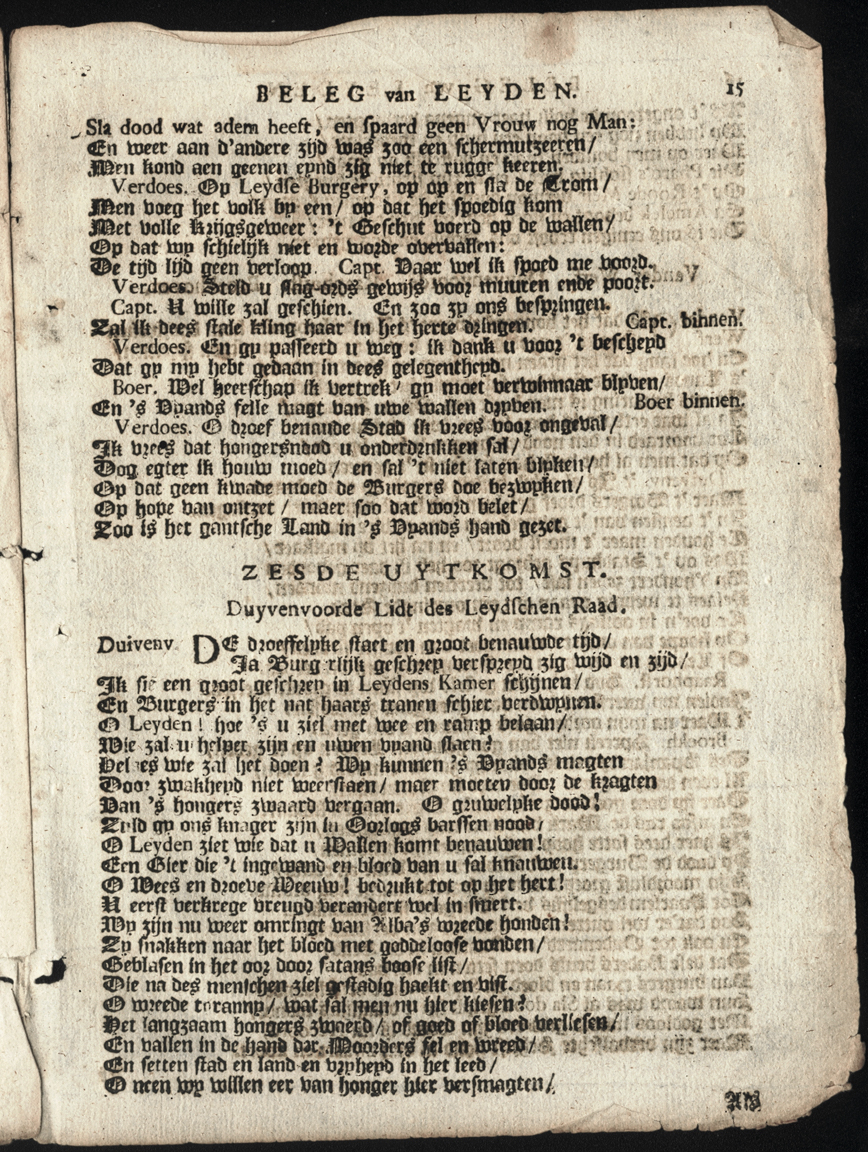 BELEG van LEYDEN. 15
Sla dood wat adem heeft, en spaard geen Vrouw nog Man:
En weer aan d'andere zijd was zoo een schermutzeeren/
Men kond aen geenen eynd zig niet te rugge keeren.
Verdoes. Op Leydse Burgery, op op en sla de Trom/
Men voeg het volk by een/ op dat het spoedig kom
Met volle Krijgsgeweer: 't Geschut voerd op de wallen/
Op dat wy schielijk niet en worde overvallen:
De tijd lijd geen verloop. Capt. Daar wel ik spoed me voord.
Verdoes. Steld u slag-ords gewijs voor muuren ende poort.
Capt. U wille zal geschien. En zoo zy ons bespringen.
Zal ik dees stale kling haar in het herte dringen. Capt. binnen.
Verdoes. En gy passeerd u weg: ik dank u voor 't bescheyd
Dat gy my hebt gedaan in dees gelegentheyd.
Boer. Wel heerschap ik vertrek/ gy moet verwinnaar blyven/
En 's Vyands felle magt van uwe wallen dryven. Boer binnen.
Verdoes. O droef benaude Stad ik vrees voor ongeval/
Ik vrees dat hongersnood u onderdrukken sal/
Dog egter ik houw moed/ en sal 't niet laten blyken/
Op dat geen kwade moed de Burgers doe bezwyken/
Op hope van ontzet/ maer soo dat word belet/
Zoo is het gantsche Land in 's Vyands hand gezet.
ZESDE UYTKOMST.
Duyvenvoorde Lidt des Leydschen Raad.
Duivenv DE droeffelyke staet en groot benauwde tijd/
Ja Burg rlijk geschrey verspreyd zig wijd en zijd/
Ik sie een groot geschrey in Leydens Kamer schijnen/
En Burgers in het nat haars tranen schier verdwynen.
O Leyden! hoe 's u ziel met wee en ramp belaan/
Wie zal u helper zijn en uwen vyand slaen?
Helaes wie zal het doen? Wy kunnen 's Vyands magten
Door zwakheyd niet weerstaen/ maer moeten door de kragten
Van 's hongers zwaard vergaan. O gruwelyke dood!
Zuld gy ons knager zijn in Oorlogs barssen nood/
O Leyden ziet wie dat u Wallen komt benauwen!
Een Gier die 't ingewand en bloed van u sal knauwen.
O Wees en droeve Weeuw! bedrukt tot op het hert!
U eerst verkrege vreugd verandert wel in smert.
Wy zijn nu weer omringt van Alba's wreede honden!
Zy snakken naar het bloed met goddeloose vonden/
Geblasen in het oor door satans boose list/
Die na des menschen ziel gestadig haekt en vist.
O wreede tiranny/ wat sal men nu hier kiesen?
Het langzaam hongers zwaerd/ of goed of bloed verliesen/
En vallen in de hand der Moorders fel en wreed/
En setten stad en land en vryheyd in het leed/
O neen wy willen eer van honger hier versmagten/
Als